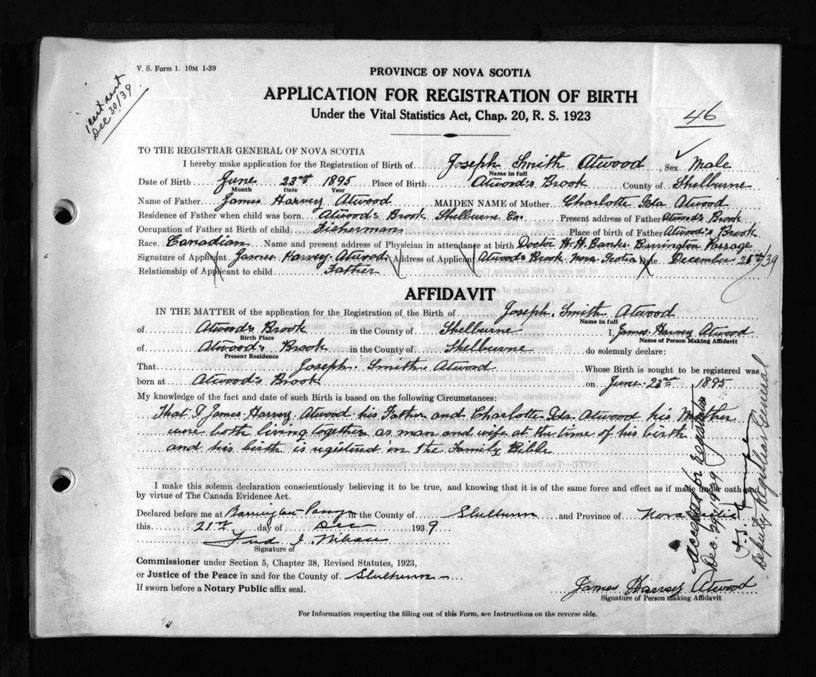 V. S. Form 1. 10M 1-39
1 cert sent
Dec 30/39
PROVINCE OF NOVA SCOTIA
APPLICATION FOR REGISTRATION OF BIRTH
Under the Vital Statistics Act, Chap. 20, R. S. 1923
46
TO THE REGISTRAR GENERAL OF NOVA SCOTIA
I hereby make application for the Registration of Birth of Joseph Smith Atwood, Sex Male
Name in full
Date of Birth June 23rd 1895 Place of Birth Atwood's Brook County of Shelburne
Month Date Year
Name of Father James Harvey Atwood MAIDEN NAME of Mother Charlotte Ida Atwood
Residence of Father when child was born Atwood's Brook Shelburne Co. Present address of Father Atwood's Brook
Occupation of Father at Birth of child Fisherman Place of birth of Father Atwood's Brook
Race Canadian Name and present address of Physician in attendance at birth Doctor H. H. Banks. Barrington Passage
Signature of Applicant James Harvey Atwood Address of Applicant Atwood's Brook Nova Scotia Date December 21st/39
Relationship of Applicant to child Father
AFFIDAVIT
IN THE MATTER of the application for the Registration of the Birth of Joseph Smith Atwood
Name in full
of Atwood's Brook in the County of Shelburne I, James Harvey Atwood
Birth Place Name of Person Making Affidavit
of Atwood's Brook in the County of Shelburne do solemnly declare:
Present Residence
That Joseph Smith Atwood Whose Birth is sought to be registered was
born at Atwood's Brook on June 23rd 1895
My knowledge of the fact and date of such Birth is based on the following Circumstances:
That I James Harvey Atwood his Father and Charlotte Ida Atwood his Mother
were both living together as man and wife at the time of his birth
and his birth is registered in the Family Bible
I make this solemn declaration conscientiously believing it to be true, and knowing that it is of the same force and effect as if made under oath
by virtue of The Canada Evidence Act.
Declared before me at Barrington Passage in the County of Shelburne and Province of Nova Scotia
this 21st day of Dec 1939
Fred I.
Signature of
Commissioner under Section 5, Chapter 38, Revised Statutes, 1923,
or Justice of the Peace in and for the County of Shelburne
If sworn before a Notary Public affix seal.
James Harvey Atwood
Signature of Person making Affidavit
Accepted for registration
Dec
Deputy Registrar General
For Information respecting the filling out of this Form, see Instructions on the reverse side.